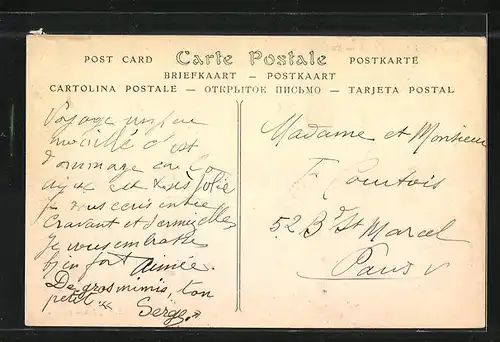 POST CARD Carte Postale POSTKARTE
BRIEFKAART — POSTKAART
CARTOLINA POSTALE — ОТКРЫТОК ПИСЬМО — TARJETA POSTAL
Voyage un peu
mouillé c'est
dommage car la
est très jolie
Je vous écris entre
Cravant et Sermizelles
Je vous embrasse
bien fort Aimée.
De gros mimis, ton
petit
Serge.
Madame et Monsieur
F. Courtois
52 Bd St Marcel
Paris V